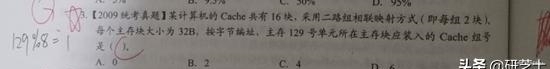 C. 50% D. 95%
3.【2009统考真题】某计算机的 Cache 共有16块,采用二路组相联映射方式(即每组2块)。
129%8=1
每个主存块大小为32B,按字节编址,主存129号单元所在主存块应装入的 Cache 组号
是( )。
A. 0 B. 2 C. 4 D. 6
头条 @研艺士